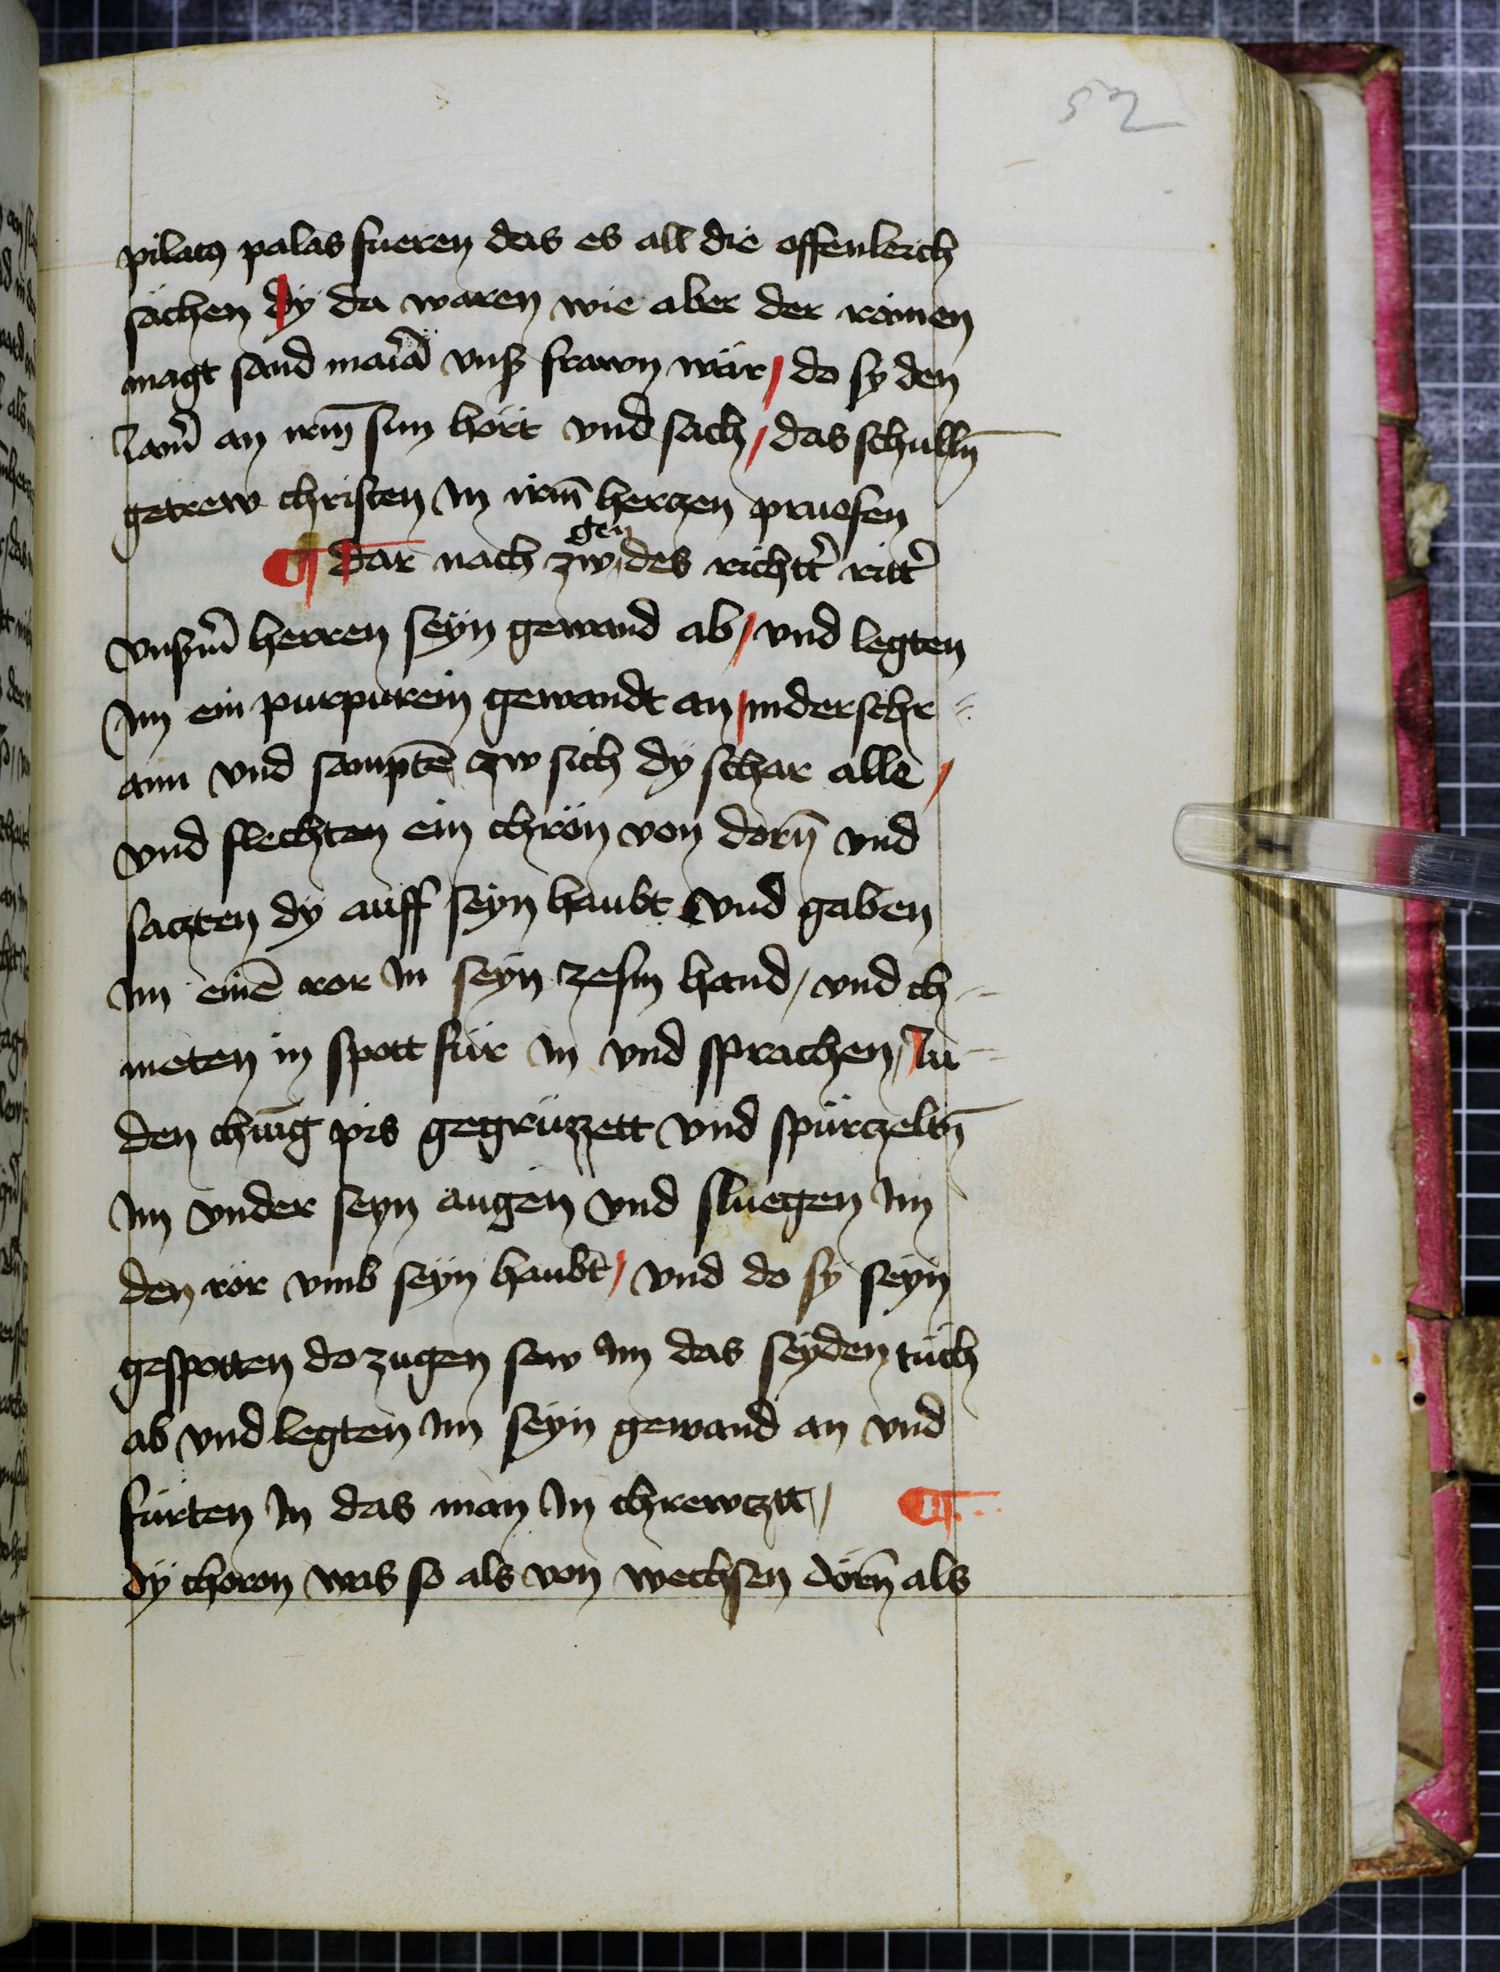 52
pilatꝰ palas fueren das es all die offenleich
sächen dÿ da waren wie aber der rainen
magt sand maͬiä vnß frawn wär / do sy den
Jam̉ an irm̄ sun hört vnd sach / das schulln̄
getrew christen in irm̄ herczen pruefen
¶ Dar nach zwgen des richtt̉ ritt̉
vnßm̉ herren seyn gewand ab / vnd legten
im ein purpurein gewandt an / inderschr=
ann vnd sampte̅ zw sich dÿ schar alle /
vnd flechten ein chrön von dorn̄ vnd
saczten dÿ auff seyn haubt vnd gaben
im eine̅ ror in seyn zesm hand / vnd ch=
meten in spott für in vnd sprachen / Ju=
den chu̅ig pis gegrüzzett vnd spürczeltn̄
im vnder seyn augen vnd sluegen im
den rör vmb seyn haubt / vnd do sÿ seyn
gespotten do zugen sew im das seyden tuch
ab vnd legten im seyn gewand an vnd
fürten in das man in chrewcztt / ¶
dÿ choron was so als von wechsen dörn̄ als